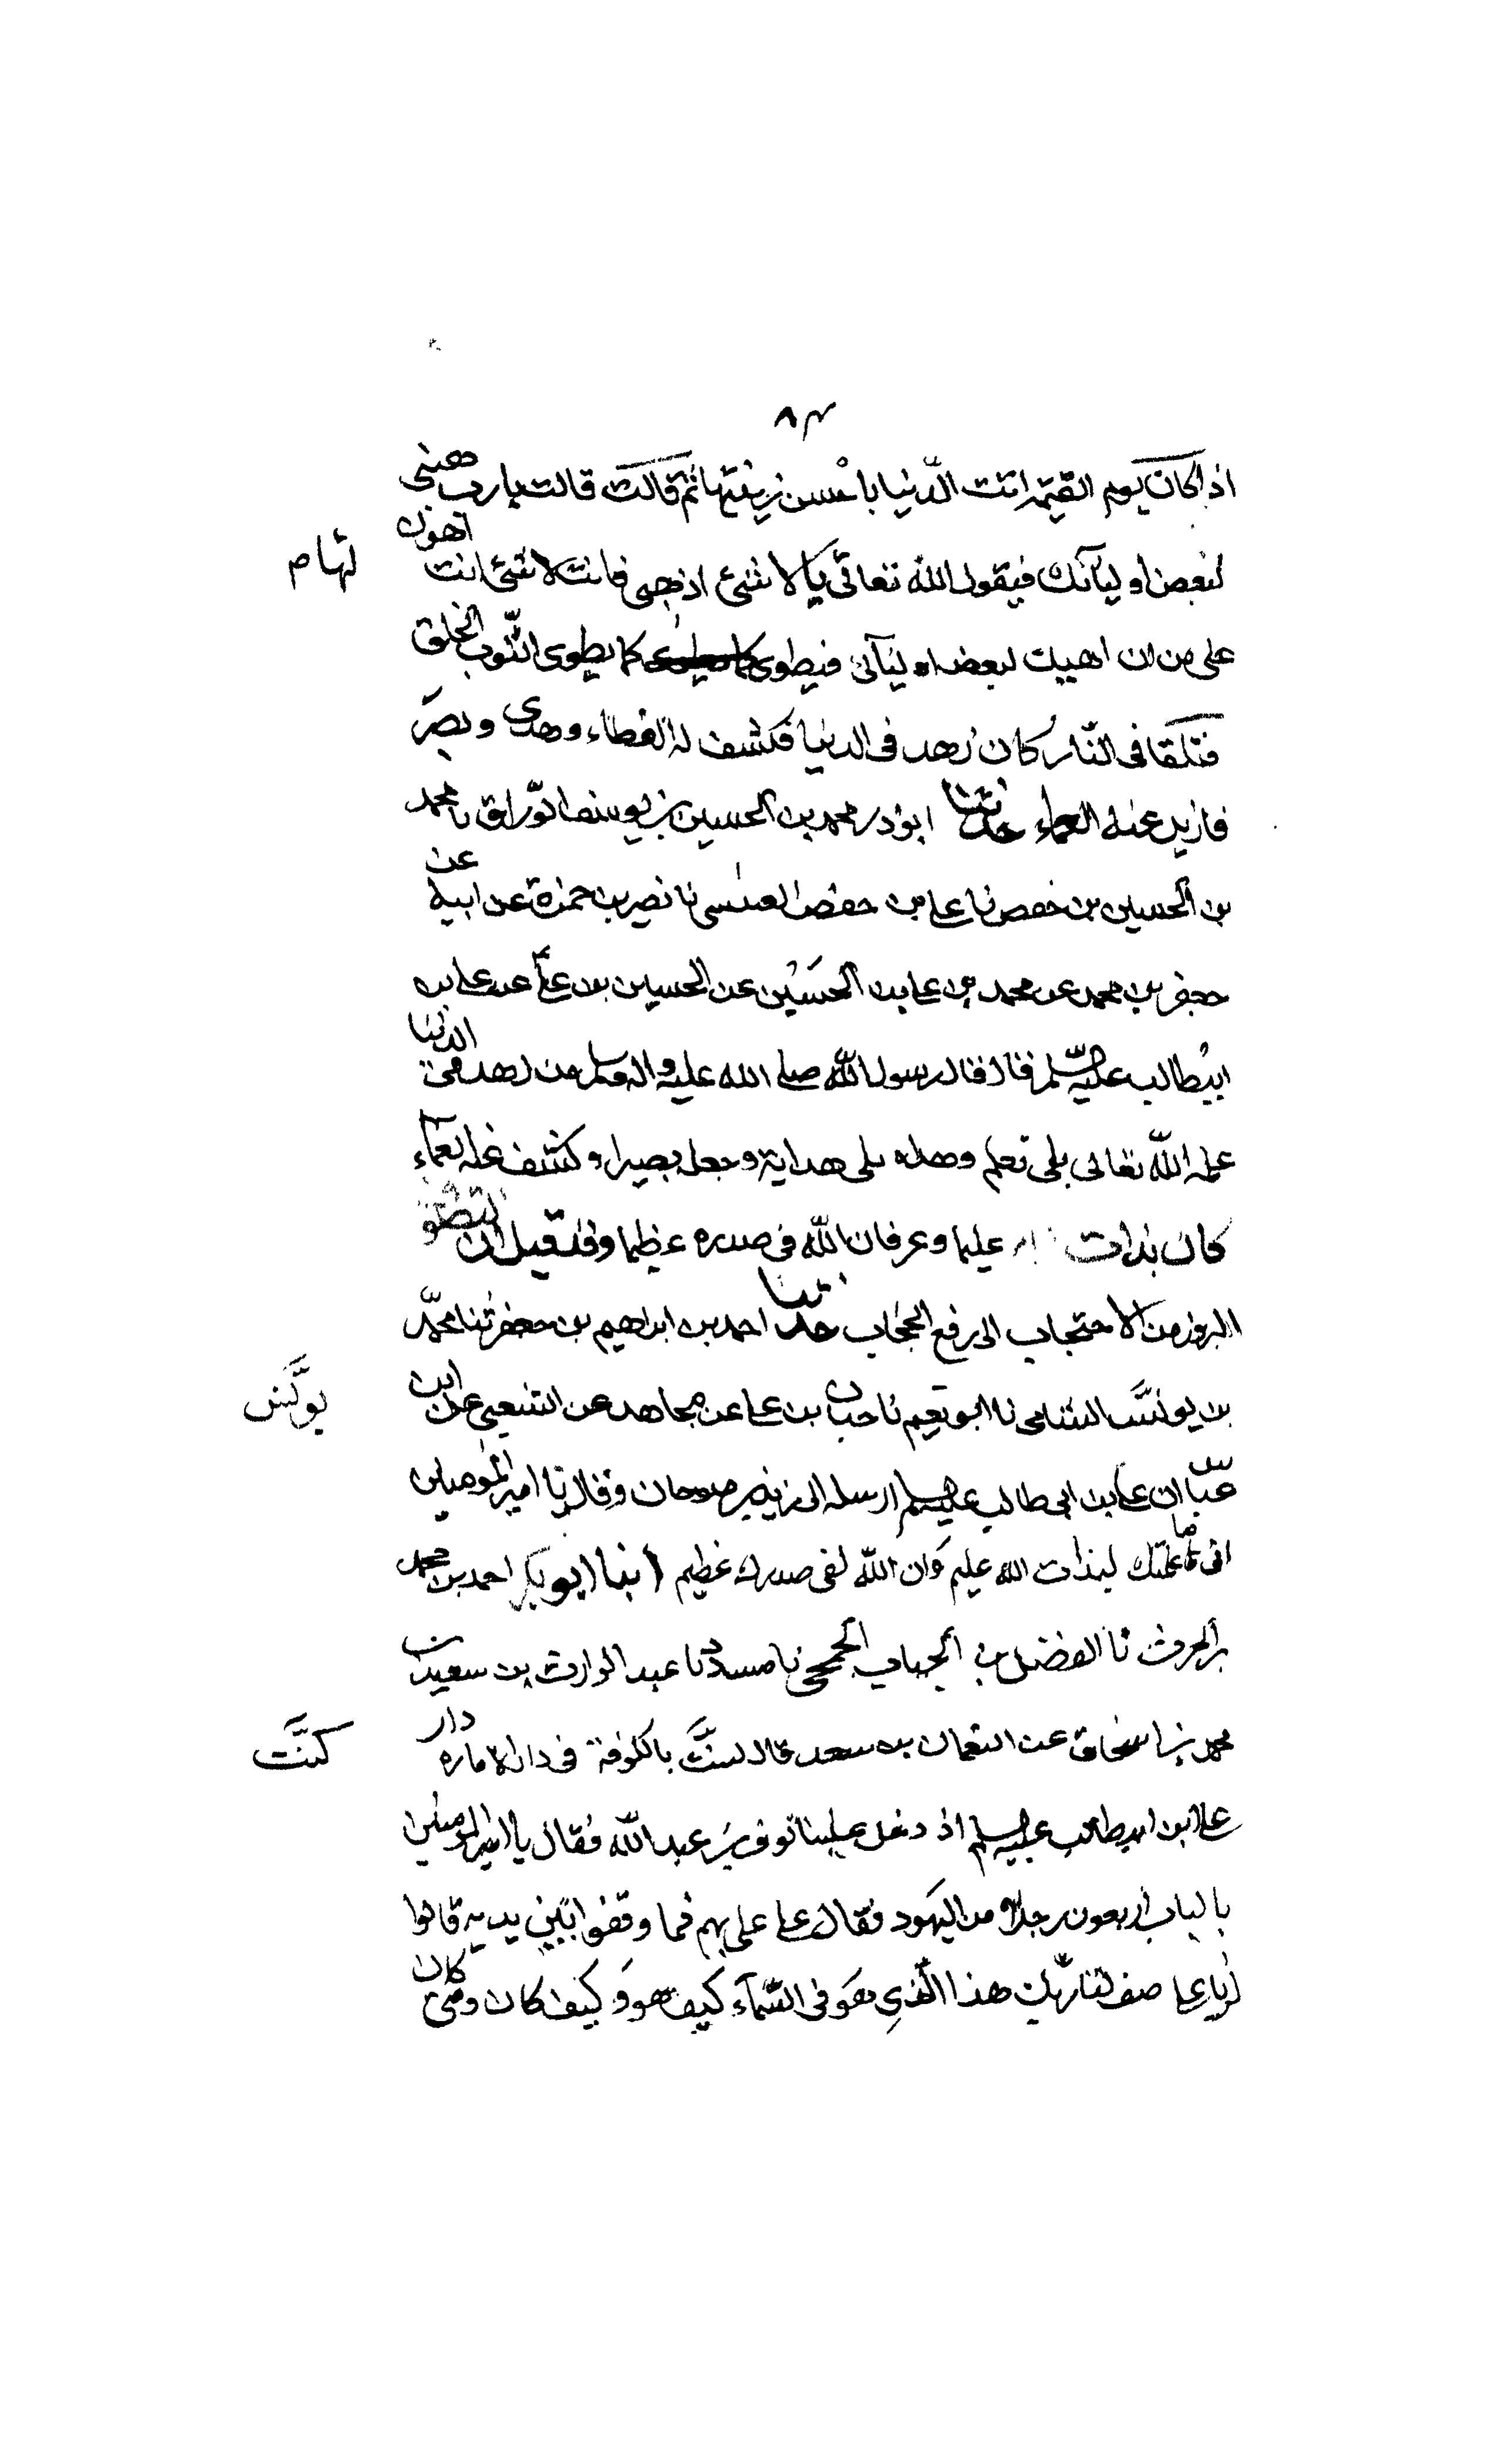 ٨٣
اذا كان يوم القيمة اتت الدّنيا باحْسن زينتها ثم قالت قالت يارب هبنى
لبعض اوليآئك فيقول الله تعالى يا لا شئ اذهبى فانت لا شئ انت اهون
لها م
على من ان اهبك لبعض اوليآئى فيطوى كما يطوى الثّوب الخلق
فتلقا فى النّار كان زهد فى الدنيا فكشف له الغطاء وهدى وبصر
فازيل عنه العماء حدثنا ابوذر محمد بن الحسين بن يوسف الوّراق نا محمد
بن الحسين بن حفص نا على بن حفص العبسى نا نصير بن حمزة عن ابيه عن
جعفر بن محمد عن محمد بن على بن الحسَيْن عن الحسين بن علىّ عن على بن
ابيطالب عليه السّلم قال قال رسول الله صلى الله عليه واله وسلم من زهد فى الدنيا
علمه الله تعالى بلى تعلم وهداه بلى هداية وجعله بصيرا وكشف عنه العمآء
كان بذات عليما وعرفان الله فى صدره عظيما وقد قيل ان التصوّف
البروز من الاحتجاب الى رفع الحجاب حدثنا احمد بن ابراهيم بن جعفر ثنا محمّد
بن يونس الشامى نا ابو نعيم نا حبان بن على عن مجاهد عن الشعبى عن ابن
يونس
عبّاس ان على بن ابى طالب عليه السلم ارسله الى زيد بن صوحان وقال يا امير المومنين
انى ما علمتك لبذات الله عليم وان الله لفى صدرك عظيم انبا ابو بكر احمد بن محمد
بن الحرث نا الفضل بن الحباب الجمحى نا مسدد نا عبد الوارث بن سعيد عن
محمد بن اسحاق عن النعمان بن سعد قال كنت بالكوفة فى دار الامارة دار
كنَّت
على ابن ابيطالب عليه السلم اذ دخل علينا نوف بن عبد الله فقال يا امير المومنين
بالباب اربعون رجلا من اليهود فقال على على بهم فما وقفوا بين يديه قالوا
له يا على صف لنا ربك هذا الّذى هو فى السّمآء كيف هو وكيف كان ومتى كان